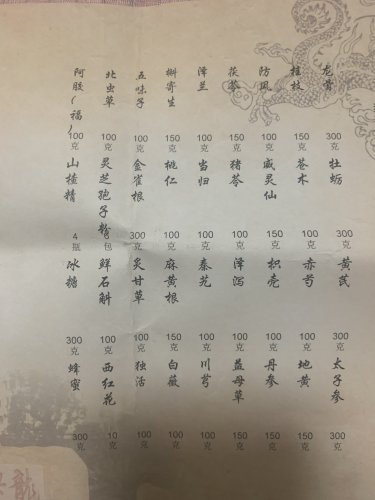 龙骨 300克 牡蛎 300克 黄芪 300克 太子参 300克
桂枝 150克 苍术 100克 赤芍 100克 地黄 150克
防风 100克 威灵仙 150克 枳壳 150克 丹参 150克
茯苓 150克 猪苓 100克 泽泻 100克 益母草 150克
泽兰 100克 当归 100克 秦艽 100克 川芎 100克
槲寄生 150克 桃仁 100克 麻黄根 150克 白薇 100克
五味子 100克 金雀根 300克 炙甘草 100克 独活 100克
北虫草 100克 灵芝孢子粉 8包 鲜石斛 100克 西红花 10克
阿胶(福) 100克 山楂精 4瓶 冰糖 300克 蜂蜜 300克
龍